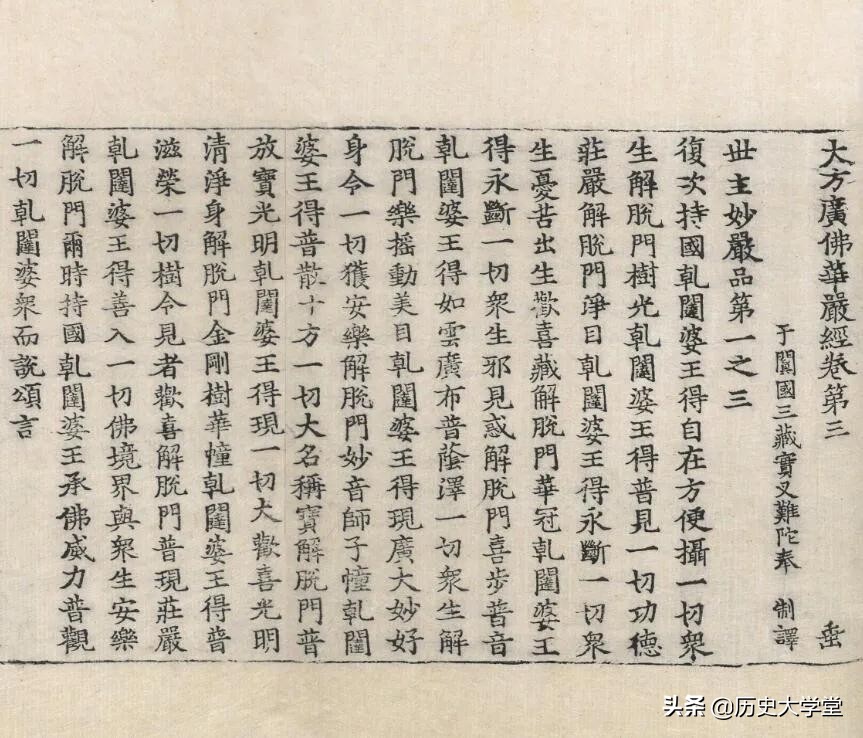 大方廣佛華嚴經卷第三 垂
于闐國三藏實叉難陀奉 制譯
世主妙嚴品第一之三
復次持國乹闥婆王得自在方便攝一切衆
生解脫門樹光乹闥婆王得普見一切功德
莊嚴解脫門淨目乹闥婆王得永斷一切衆
生憂苦出生歡喜藏解脫門華冠乹闥婆王
得永斷一切衆生邪見惑解脫門喜步普音
乹闥婆王得如雲廣布普蔭澤一切衆生解
脫門樂搖動美目乹闥婆王得現廣大妙好
身令一切獲安樂解脫門妙音師子幢乹闥
婆王得普散十方一切大名稱寶解脫門普
放寶光明乹闥婆王得現一切大歡喜光明
清淨身解脫門金剛樹華幢乹闥婆王得普
滋榮一切樹令見者歡喜解脫門普現莊嚴
乹闥婆王得善入一切佛境界與衆生安樂
解脫門爾時持國乹闥婆王承佛威力普觀
一切乹闥婆衆而說頌言
头条 @历史大学堂